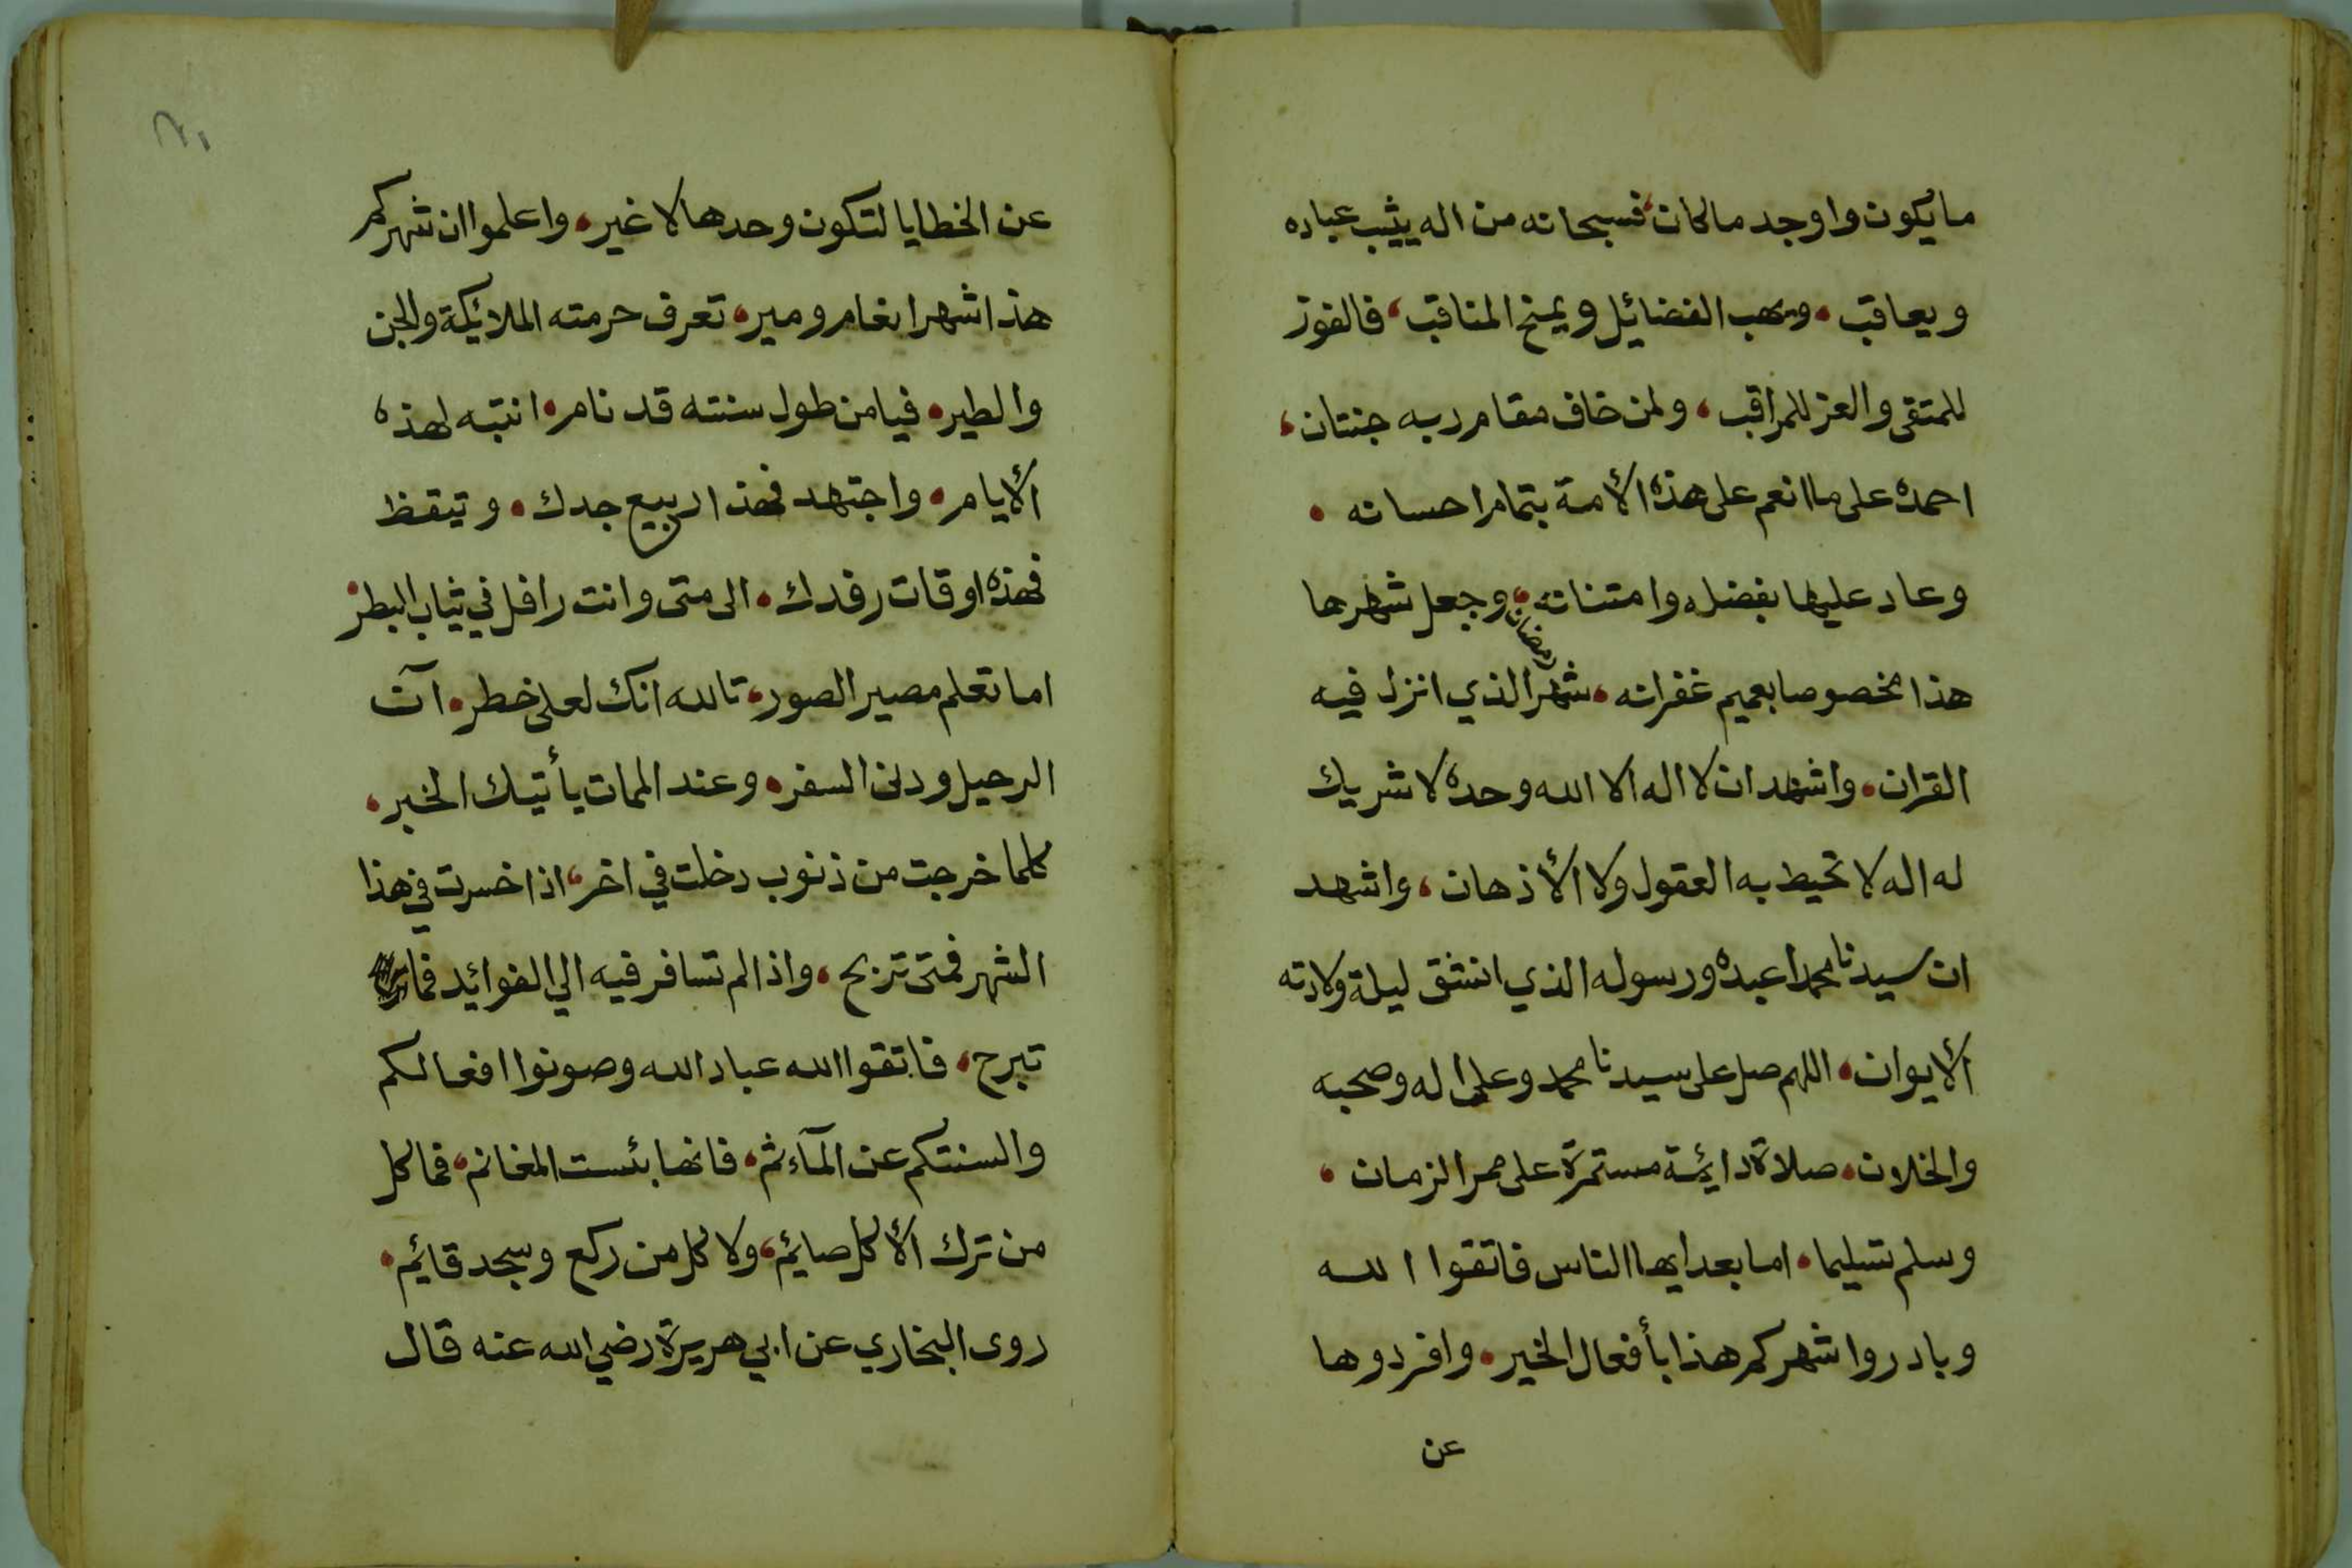 ما يكون واوجد ما كان، فسبحانه من اله يثيب عباده
ويعاقب، ويهب الفضائيل ويمنح المناقب، فالفوز
للمتقى والعز للمراقب، ولمن خاف مقام ربه جنتان،
احمده على ما انعم على هذه الأمة بتمام احسانه،
وعاد عليها بفضله وامتنانه، وجعل شهرها
هذا مخصوصا بعميم غفرانه، شهر رمضان الذي انزل فيه
القران، واشهد ان لا اله الا الله وحده لا شريك
له اله لا تحيط به العقول ولا الأذهان، واشهد
ان سيدنا محمدا عبده ورسوله الذي انشق ليلة ولادته
الأيوان، اللهم صل على سيدنا محمد وعلى اله وصحبه
والخلان، صلاة دائيمة مستمرة على ممر الزمان،
وسلم تسليما، اما بعد ايها الناس فاتقوا الله
وبادروا شهركم هذا بأفعال الخير، وافردوها
عن
٢١
عن الخطايا لتكون وحدها لا غير، واعلموا ان شهركم
هذا شهر انغام ومير، تعرف حرمته الملائيكة والجن
والطير، فيا من طول سنته قد نام، انتبه لهذه
الأيام، واجتهد فهذا ربيع جدك، وتيقظ
فهذه اوقات رفدك، الى متى وانت رافل في ثياب البطر،
اما تعلم مصير الصور، تالله انك لعلى خطر، آن
الرحيل ودنى السفر، وعند الممات يأتيك الخبر،
كلما خرجت من ذنوب دخلت في اخر، اذا خسرت في هذا
الشهر فمتى تربح، واذا لم تسافر فيه الي الفوائيد فما
تبرح، فاتقوا الله عباد الله وصونوا افعالكم
والسنتكم عن المآءثم، فانها بئست المغانم، فما كل
من ترك الأكل صايئم، ولا كل من ركع وسجد قايئم،
روى البخاري عن ابي هريرة رضي الله عنه قال